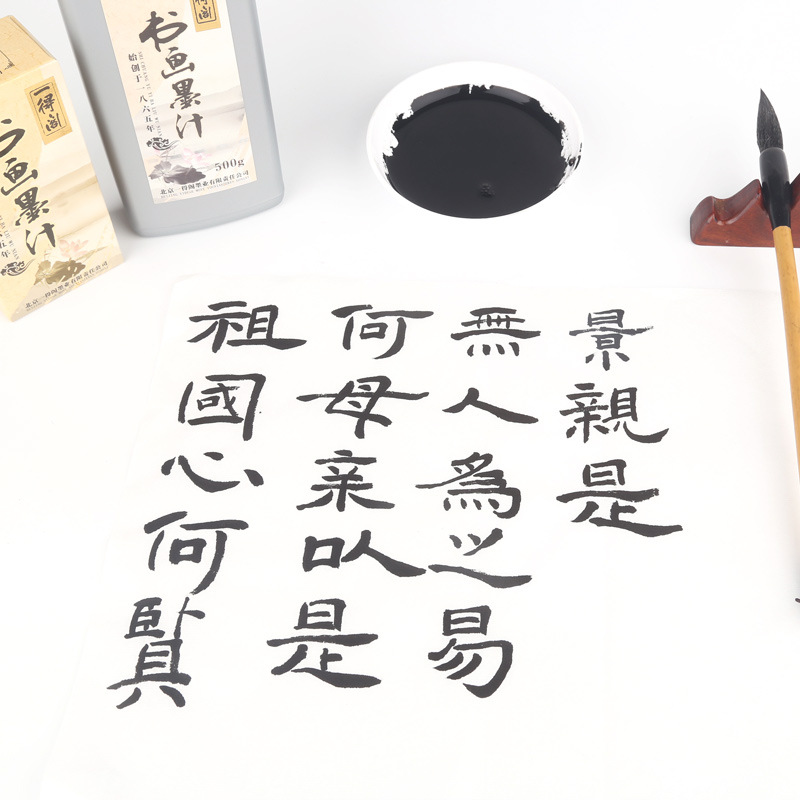 景親是
無人為之易
何母亲以是
祖國心何賢
得阁
书画墨汁
始创于一八六五年
500g
北京一得阁墨业有限责任公司
一得阁
书画墨汁
五年
北京一得阁墨业有限责任公司